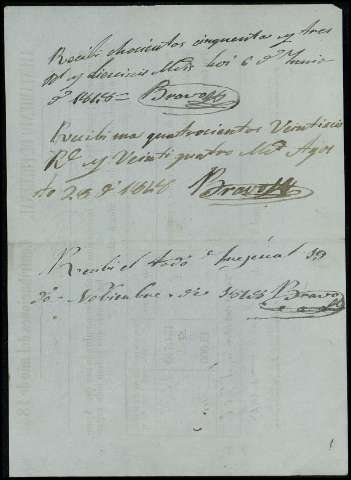 Recibi chocientos cinquenta y tres
Rs y dieciseis Mrs hoi 6 de Junio
de 1848 = Bravo
Recibi mas quatrocientos Ventiseis
Rs y Veintiquatro Mrs Agos
to 28 de 1848 Bravo
Recibi el todo 19
de Nobienbre de 1848 Bravo